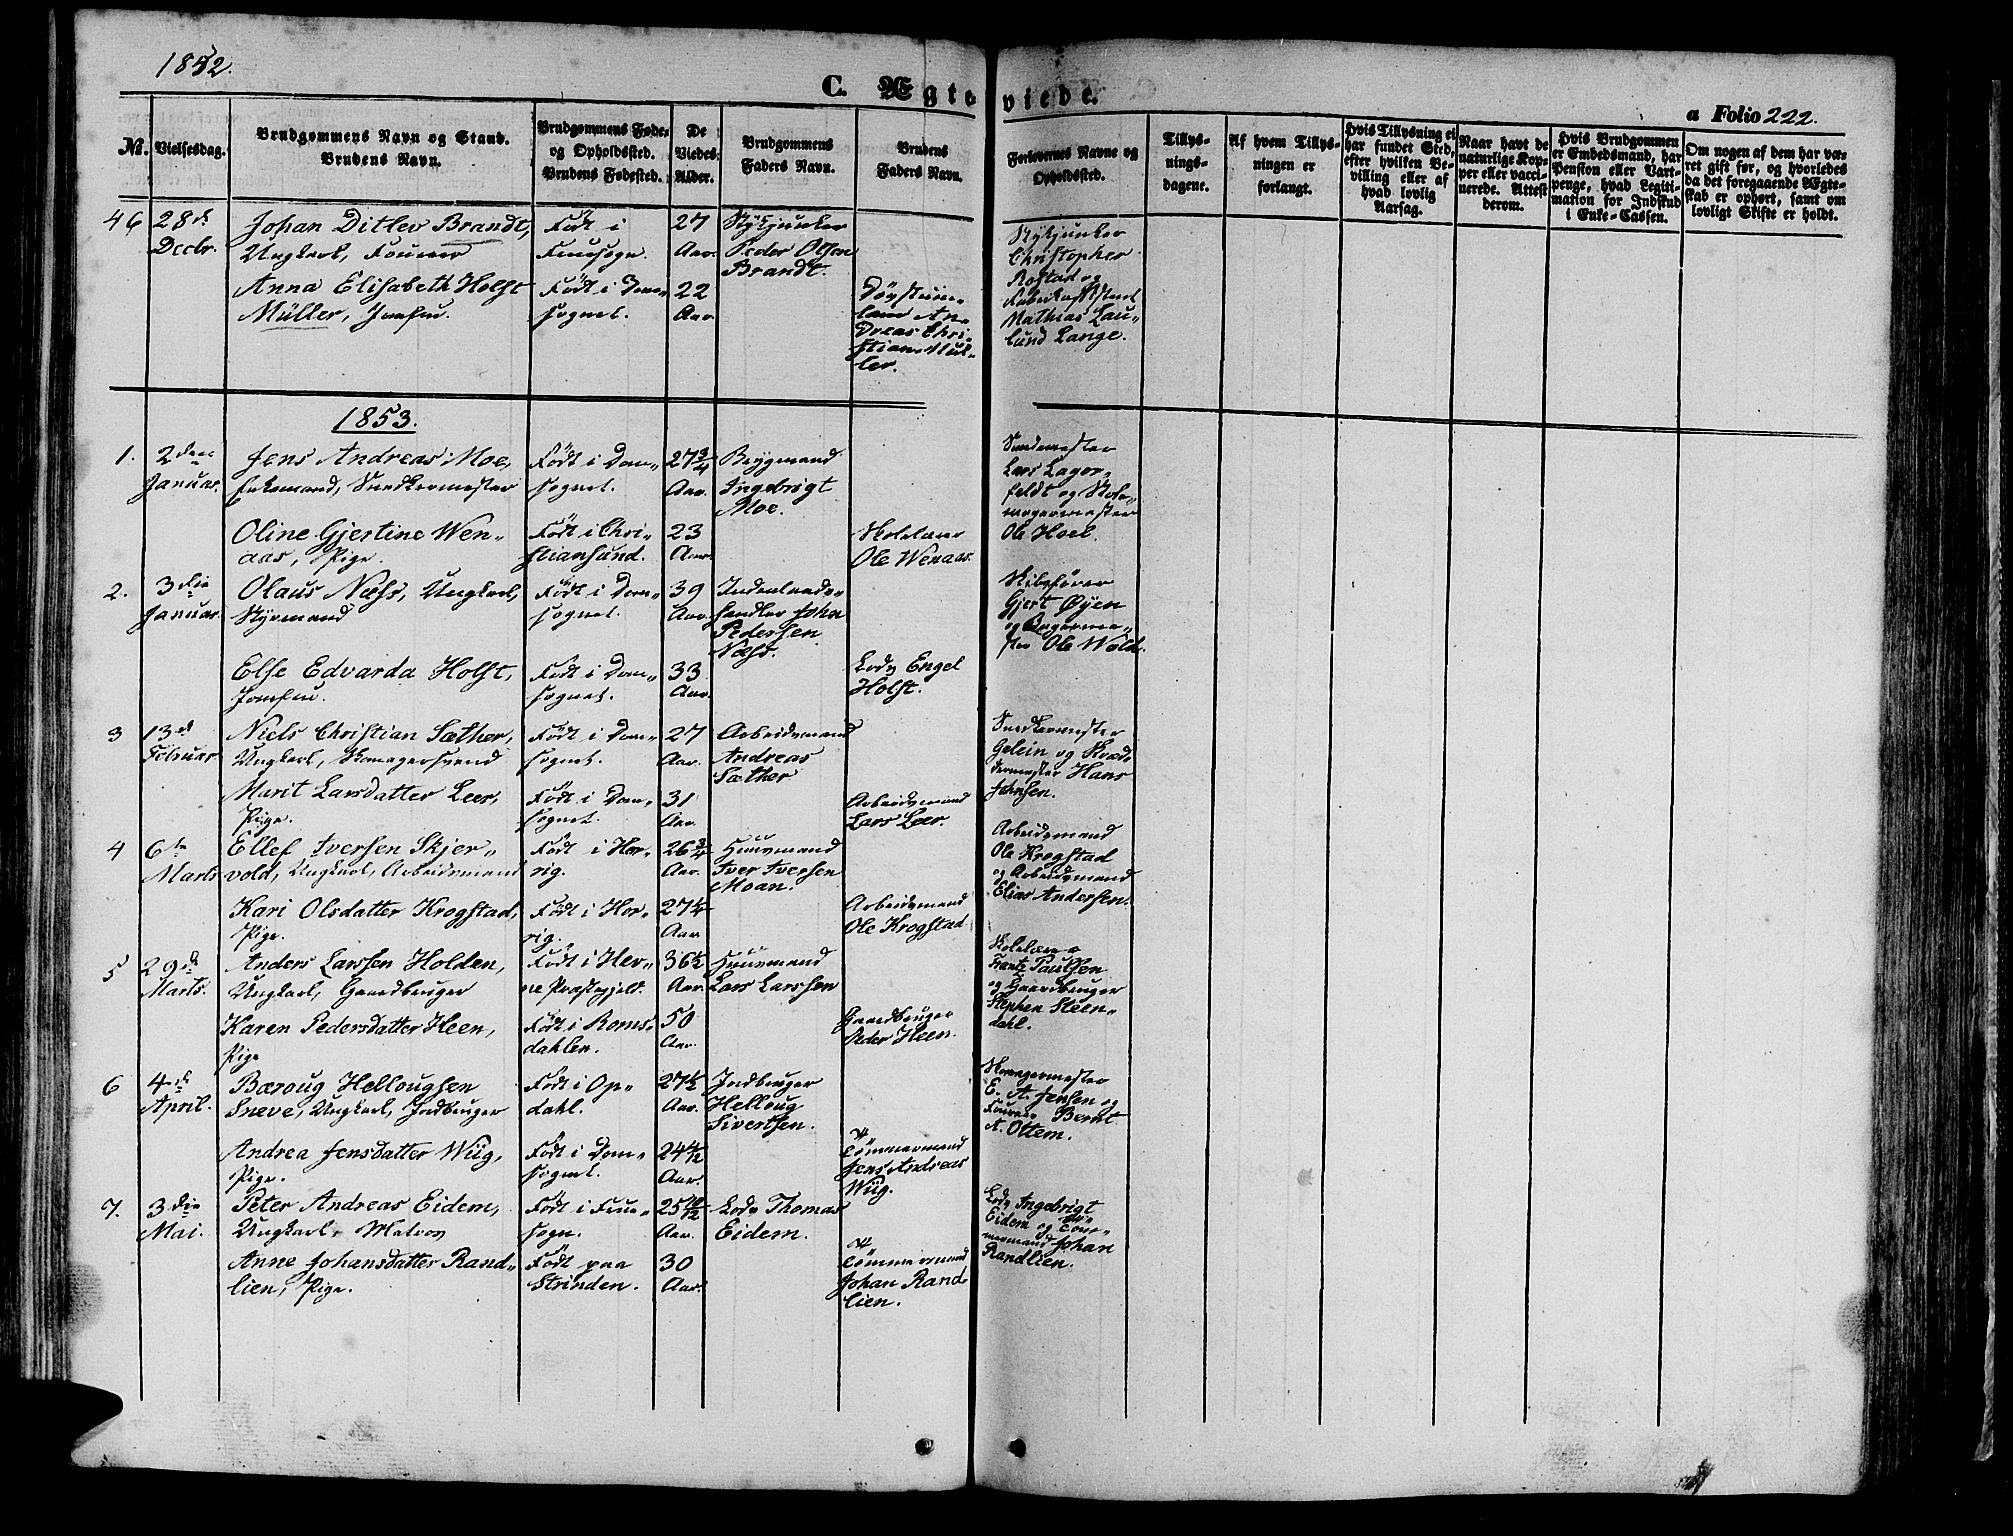 1852.
C. Ægteviede.
a Folio 222.
No. Vielsesdag. Brudgommens Navn og Stand. Brudens Navn. Brudgommens Føde- og Opholdssted. Brudens Fødested. De Viedes Alder. Brudgommens Faders Navn. Brudens Faders Navn. Forlovernes Navne og Opholdssted. Tillysningsdagene. Af hvem Tillysningen er forlangt. Hvis Tillysning ei har fundet Sted, efter hvilken Bevilling eller af hvad lovlig Aarsag. Naar havt de naturlige Kopper eller vaccinerede. Attest derom. Hvis Brudgommen er Embedsmand, har Pension eller Vartpenge, hvad Legitimation for Indskud i Enke-Cassen. Om nogen af dem har været gift før, og hvorledes da det foregaaende Ægteskab er ophørt, samt om lovligt Skifte er holdt.
46 28de Decbr. Johan Ditlev Brandt, Ungkarl, Fourer
Født i Fruesogn.
27 Aar.
Stykjunker Peder Olsen Brandt.
Stykjunker Christopher Rostad og
Mathias Laulund Lange.
Anna Elisabeth Holst Müller, Jomfru.
Født i Domsognet.
22 Aar.
Andreas Christian Müller.
1853.
1. 2den Januar. Jens Andreas Moe, Enkemand, Snedkermester
Født i Domsognet.
27 3/4 Aar.
Brygmand Ingebrigt Moe.
Snedkermester Lars Lagerfeldt og Skomagermester Ole Hoel.
Oline Gjertine Wenaas, Pige.
Født i Christiansund.
23 Aar.
Skolelærer Ole Wenaas.
2. 3die Januar. Olaus Næss, Ungkarl, Styrmand
Født i Domsognet.
39 Aar.
John Pedersen Næss.
Skibsfører Gjert Øyen og Bagermester Ole Wold.
Else Edvarda Holst, Jomfru.
Født i Domsognet.
33 Aar.
Lods Engel Holst.
3 13de Februar Niels Christian Sæther, Ungkarl, Skomagersvend
Født i Domsognet.
27 Aar.
Arbeidsmand Andreas Sæther
Snedkermester Gelein og Skræddermester Hans Jensen.
Marit Larsdatter Leer, Pige.
Født i Domsognet.
31 Aar.
Arbeidsmand Lars Leer.
4 6te Marts Ellef Iversen Skjervold, Ungkarl, Arbeidsmand
Født i Horrig.
26 3/4 Aar.
Huusmand Iver Iversen Moan.
Arbeidsmand Ole Krogstad og Arbeidsmand Elias Andersen.
Kari Olsdatter Krogstad, Pige.
Født i Horrig.
27 1/4 Aar
Arbeidsmand Ole Krogstad
5 29de Marts. Anders Larssen Holden, Ungkarl, Gaardbruger
Født i Hevne Præstegjeld.
36 1/2 Aar
Huusmand Lars Larssen
Skolelærer Frantz Paulsen og Gaardbruger Stephen Steendahl.
Karen Pedersdatter Heen, Pige
Født i Romsdahlen.
50 Aar.
Gaardbruger Peder Heen.
6 4de April. Bæroug Hellougsen Sneve, Ungkarl, Jndbruger
Født i Opdahl.
27 1/2 Aar.
Jndbruger Helloug Sivertsen.
Skomagermester E. A. Jensen og Fourer Bernt A. Ottem.
Andrea Jensdatter Wiig, Pige.
Født i Domsognet.
24 1/2 Aar.
Tømmermand Jens Andreas Wiig.
7. 3die Mai. Peter Andreas Eidem, Ungkarl, Matros
Født i Fruesogn.
25 10/12 Aar.
Lods Thomas Eidem.
Lods Ingebrigt Eidem og Tømmermand Johan Randlien.
Anne Johansdatter Randlien, Pige.
Født paa Strinden.
30 Aar.
Tømmermand Johan Randlien.